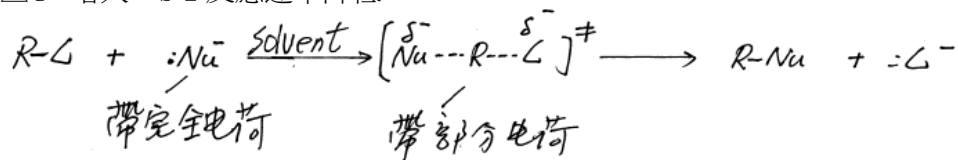 R-L + :Nu⁻ solvent → [Nu^δ⁻---R---L^δ⁻]^≠ → R-Nu + :L⁻
帶完全电荷 帶部分电荷